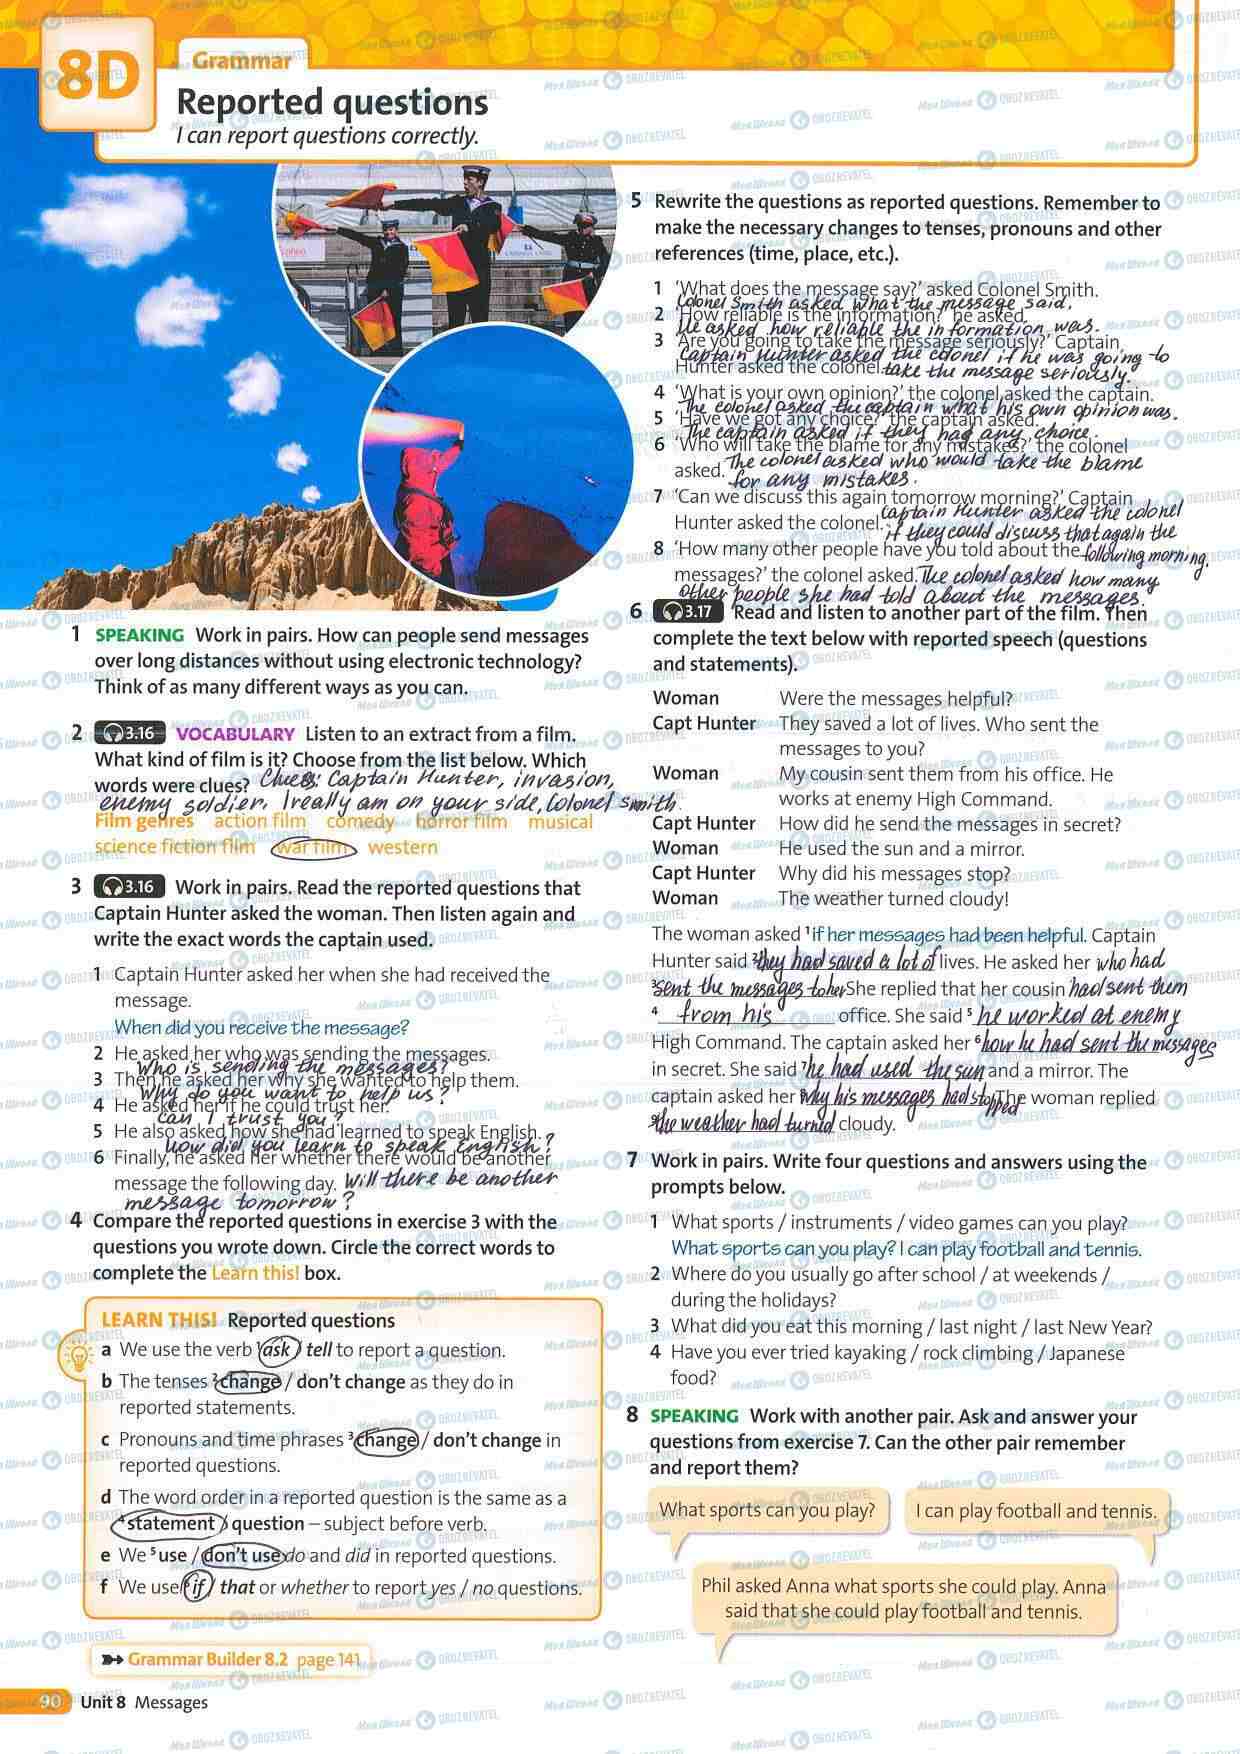 8D
Grammar
Reported questions
I can report questions correctly.
1 SPEAKING Work in pairs. How can people send messages
over long distances without using electronic technology?
Think of as many different ways as you can.
2 3.16 VOCABULARY Listen to an extract from a film.
What kind of film is it? Choose from the list below. Which
words were clues? Clues: Captain Hunter, invasion,
enemy soldier, I really am on your side, Colonel Smith.
Film genres action film comedy horror film musical
science fiction film war film western
3 3.16 Work in pairs. Read the reported questions that
Captain Hunter asked the woman. Then listen again and
write the exact words the captain used.
1 Captain Hunter asked her when she had received the
message.
When did you receive the message?
2 He asked her who was sending the messages.
Who is sending the messages?
3 Then he asked her why she wanted to help them.
Why do you want to help us?
4 He asked her if he could trust her.
Can I trust you?
5 He also asked how she had learned to speak English.
How did you learn to speak English?
6 Finally, he asked her whether there would be another
message the following day. Will there be another
message tomorrow?
4 Compare the reported questions in exercise 3 with the
questions you wrote down. Circle the correct words to
complete the Learn this! box.
LEARN THIS! Reported questions
a We use the verb 1ask / tell to report a question.
b The tenses 2change / don't change as they do in
reported statements.
c Pronouns and time phrases 3change / don't change in
reported questions.
d The word order in a reported question is the same as a
4statement / question – subject before verb.
e We 5use / don't use do and did in reported questions.
f We use 6if / that or whether to report yes / no questions.
Grammar Builder 8.2 page 141
90 Unit 8 Messages
5 Rewrite the questions as reported questions. Remember to
make the necessary changes to tenses, pronouns and other
references (time, place, etc.).
1 'What does the message say?' asked Colonel Smith.
Colonel Smith asked what the message said.
2 'How reliable is the information?' he asked.
He asked how reliable the information was.
3 'Are you going to take the message seriously?' Captain
Captain Hunter asked the colonel if he was going to
Hunter asked the colonel. take the message seriously.
4 'What is your own opinion?' the colonel asked the captain.
The colonel asked the captain what his own opinion was.
5 'Have we got any choice?' the captain asked.
The captain asked if they had any choice.
6 'Who will take the blame for any mistakes?' the colonel
asked. The colonel asked who would take the blame
for any mistakes.
7 'Can we discuss this again tomorrow morning?' Captain
Captain Hunter asked the colonel
Hunter asked the colonel. if they could discuss that again the
8 'How many other people have you told about the following morning.
messages?' the colonel asked. The colonel asked how many
other people she had told about the messages.
6 3.17 Read and listen to another part of the film. Then
complete the text below with reported speech (questions
and statements).
Woman Were the messages helpful?
Capt Hunter They saved a lot of lives. Who sent the
messages to you?
Woman My cousin sent them from his office. He
works at enemy High Command.
Capt Hunter How did he send the messages in secret?
Woman He used the sun and a mirror.
Capt Hunter Why did his messages stop?
Woman The weather turned cloudy!
The woman asked 1if her messages had been helpful. Captain
Hunter said 2they had saved a lot of lives. He asked her who had
3sent the messages to her She replied that her cousin had sent them
4 from his office. She said 5he worked at enemy
High Command. The captain asked her 6how he had sent the messages
in secret. She said 7he had used the sun and a mirror. The
captain asked her 8why his messages had stopped The woman replied
9the weather had turned cloudy.
7 Work in pairs. Write four questions and answers using the
prompts below.
1 What sports / instruments / video games can you play?
What sports can you play? I can play football and tennis.
2 Where do you usually go after school / at weekends /
during the holidays?
3 What did you eat this morning / last night / last New Year?
4 Have you ever tried kayaking / rock climbing / Japanese
food?
8 SPEAKING Work with another pair. Ask and answer your
questions from exercise 7. Can the other pair remember
and report them?
What sports can you play? I can play football and tennis.
Phil asked Anna what sports she could play. Anna
said that she could play football and tennis.